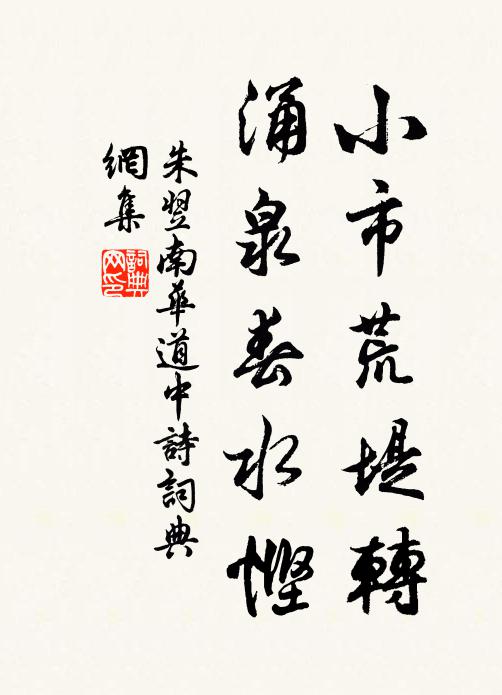 小市荒堤轉
涌泉春水慳
朱翌南華道中詩詞典
網集
詞典網印